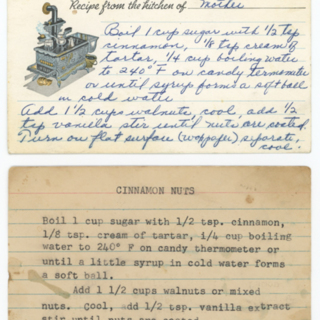 Recipe from the kitchen of Mother
Boil 1 cup sugar with 1/2 tsp
cinnamon, 1/8 tsp cream of
tartar, 1/4 cup boiling water
to 240° F on candy thermometer
or until syrup forms a soft ball
in cold water
Add 1 1/2 cups walnuts, cool, add 1/2
tsp vanilla stir until nuts are coated.
Turn on flat surface (wax paper) separate,
cool.
CINNAMON NUTS
Boil 1 cup sugar with 1/2 tsp. cinnamon,
1/8 tsp. cream of tartar, 1/4 cup boiling
water to 240° F on candy thermometer or
until a little syrup in cold water forms
a soft ball.
Add 1 1/2 cups walnuts or mixed
nuts. Cool, add 1/2 tsp. vanilla extract
stir until nuts are coated